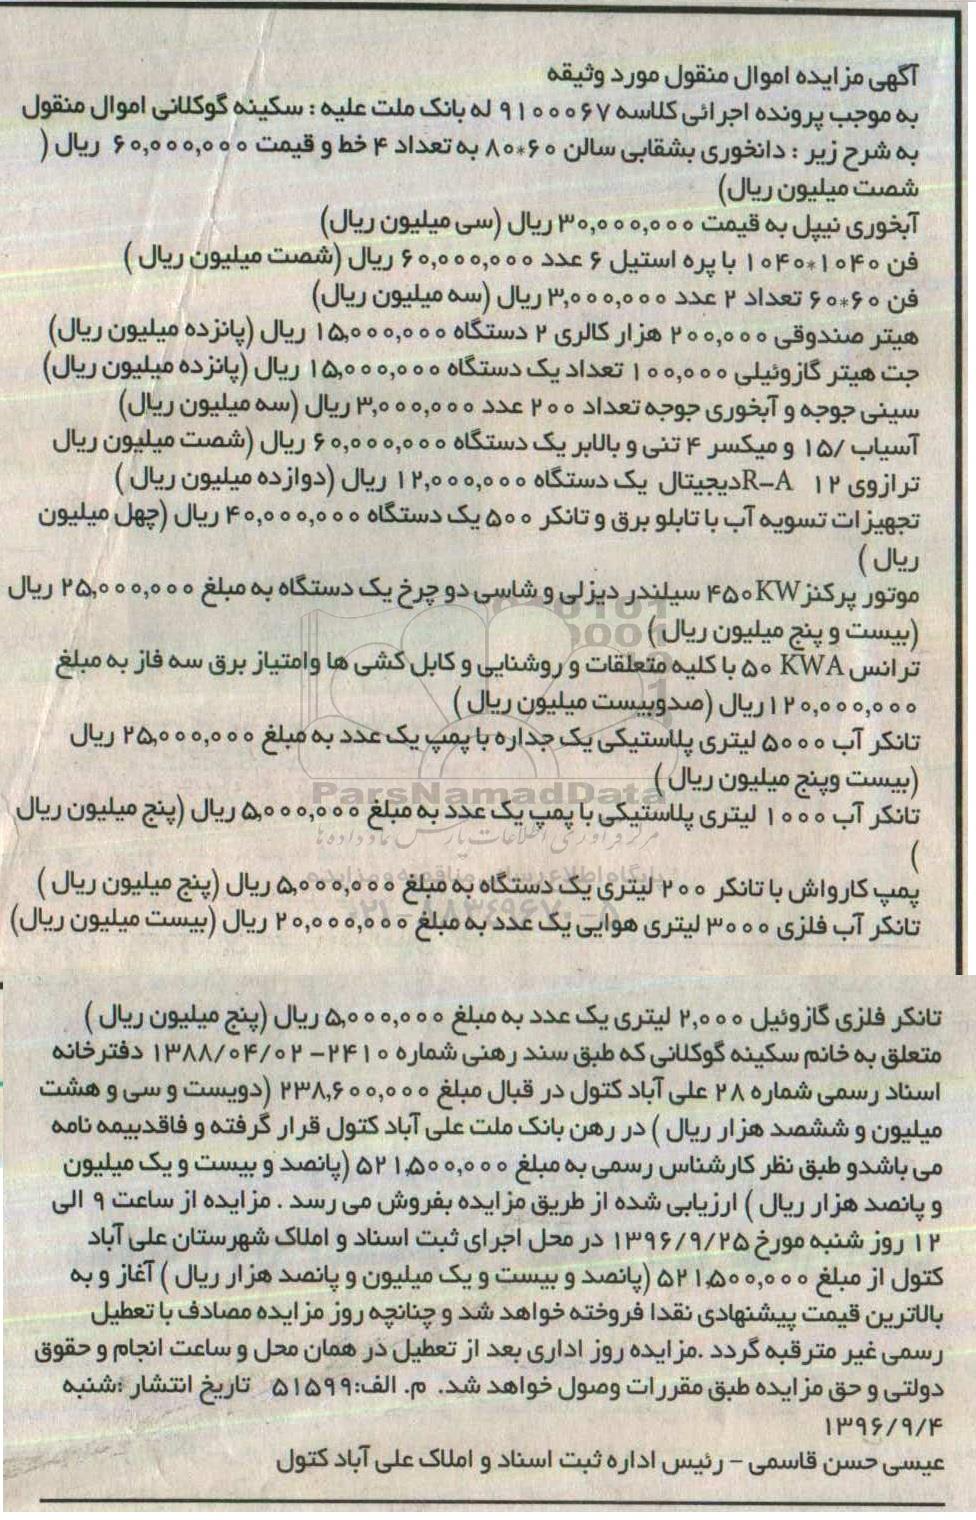 آگهی مزایده اموال منقول مورد وثیقه
به موجب پرونده اجرائی کلاسه ۹۱۰۰۰۶۷ له بانک ملت علیه : سکینه گوکلانی اموال منقول
به شرح زیر : دانخوری بشقابی سالن ۶۰*۸۰ به تعداد ۴ خط و قیمت ۶۰,۰۰۰,۰۰۰ ریال (
شصت میلیون ریال)
آبخوری نیپل به قیمت ۳۰,۰۰۰,۰۰۰ ریال (سی میلیون ریال)
فن ۱۰۴۰*۱۰۴۰ با پره استیل ۶ عدد ۶۰,۰۰۰,۰۰۰ ریال (شصت میلیون ریال )
فن ۶۰*۶۰ تعداد ۲ عدد ۳,۰۰۰,۰۰۰ ریال (سه میلیون ریال)
هیتر صندوقی ۲۰۰,۰۰۰ هزار کالری ۲ دستگاه ۱۵,۰۰۰,۰۰۰ ریال (پانزده میلیون ریال)
جت هیتر گازوئیلی ۱۰۰,۰۰۰ تعداد یک دستگاه ۱۵,۰۰۰,۰۰۰ ریال (پانزده میلیون ریال)
سینی جوجه و آبخوری جوجه تعداد ۲۰۰ عدد ۳,۰۰۰,۰۰۰ ریال (سه میلیون ریال)
آسیاب /۱۵ و میکسر ۴ تنی و بالابر یک دستگاه ۶۰,۰۰۰,۰۰۰ ریال (شصت میلیون ریال
ترازوی ۱۲ R-A دیجیتال یک دستگاه ۱۲,۰۰۰,۰۰۰ ریال (دوازده میلیون ریال )
تجهیزات تسویه آب با تابلو برق و تانکر ۵۰۰ یک دستگاه ۴۰,۰۰۰,۰۰۰ ریال (چهل میلیون
ریال )
موتور پرکنز ۴۵۰KW سیلندر دیزلی و شاسی دو چرخ یک دستگاه به مبلغ ۲۵,۰۰۰,۰۰۰ ریال
(بیست و پنج میلیون ریال )
ترانس ۵۰ KWA با کلیه متعلقات و روشنایی و کابل کشی ها وامتیاز برق سه فاز به مبلغ
۱۲۰,۰۰۰,۰۰۰ ریال (صدوبیست میلیون ریال )
تانکر آب ۵۰۰۰ لیتری پلاستیکی یک جداره با پمپ یک عدد به مبلغ ۲۵,۰۰۰,۰۰۰ ریال
(بیست وپنج میلیون ریال )
ParsNamadData
تانکر آب ۱۰۰۰ لیتری پلاستیکی با پمپ یک عدد به مبلغ ۵,۰۰۰,۰۰۰ ریال (پنج میلیون ریال
)
پمپ کارواش با تانکر ۲۰۰ لیتری یک دستگاه به مبلغ ۵,۰۰۰,۰۰۰ ریال (پنج میلیون ریال )
تانکر آب فلزی ۳۰۰۰ لیتری هوایی یک عدد به مبلغ ۲۰,۰۰۰,۰۰۰ ریال (بیست میلیون ریال)
تانکر فلزی گازوئیل ۲,۰۰۰ لیتری یک عدد به مبلغ ۵,۰۰۰,۰۰۰ ریال (پنج میلیون ریال )
متعلق به خانم سکینه گوکلانی که طبق سند رهنی شماره ۲۴۱۰- ۱۳۸۸/۰۴/۰۲ دفترخانه
اسناد رسمی شماره ۲۸ علی آباد کتول در قبال مبلغ ۲۳۸,۶۰۰,۰۰۰ (دویست و سی و هشت
میلیون و ششصد هزار ریال ) در رهن بانک ملت علی آباد کتول قرار گرفته و فاقدبیمه نامه
می باشدو طبق نظر کارشناس رسمی به مبلغ ۵۲۱,۵۰۰,۰۰۰ (پانصد و بیست و یک میلیون
و پانصد هزار ریال ) ارزیابی شده از طریق مزایده بفروش می رسد . مزایده از ساعت ۹ الی
۱۲ روز شنبه مورخ ۱۳۹۶/۹/۲۵ در محل اجرای ثبت اسناد و املاک شهرستان علی آباد
کتول از مبلغ ۵۲۱,۵۰۰,۰۰۰ (پانصد و بیست و یک میلیون و پانصد هزار ریال ) آغاز و به
بالاترین قیمت پیشنهادی نقدا فروخته خواهد شد و چنانچه روز مزایده مصادف با تعطیل
رسمی غیر مترقبه گردد .مزایده روز اداری بعد از تعطیل در همان محل و ساعت انجام و حقوق
دولتی و حق مزایده طبق مقررات وصول خواهد شد. م. الف:۵۱۵۹۹ تاریخ انتشار :شنبه
۱۳۹۶/۹/۴
عیسی حسن قاسمی - رئیس اداره ثبت اسناد و املاک علی آباد کتول